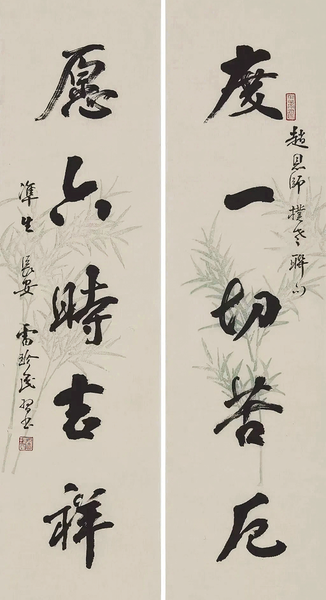 度一切苦厄
趙恩師樸老聯句
愿六時吉祥
準生 長安 雷珍民